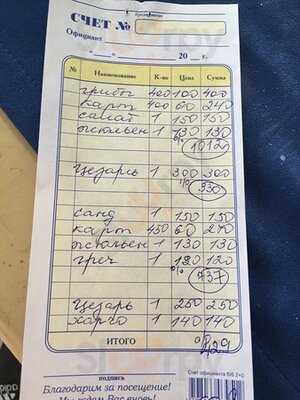 СЧЕТ №
Официант
20 г.
№ Наименование К-во Цена Сумма
грибы 400 100 400
карт 400 60 240
салат 1 150 150
жюльен 1 130 130
% 1012
цезарь 1 300 300
% 330
санд 1 150 150
карт 450 60 270
жюльен 1 130 130
греч 1 120 120
% 737
цезарь 1 250 250
харчо 1 140 140
ИТОГО % 429
подпись
Благодарим за посещение!
Мы ждем Вас вновь!